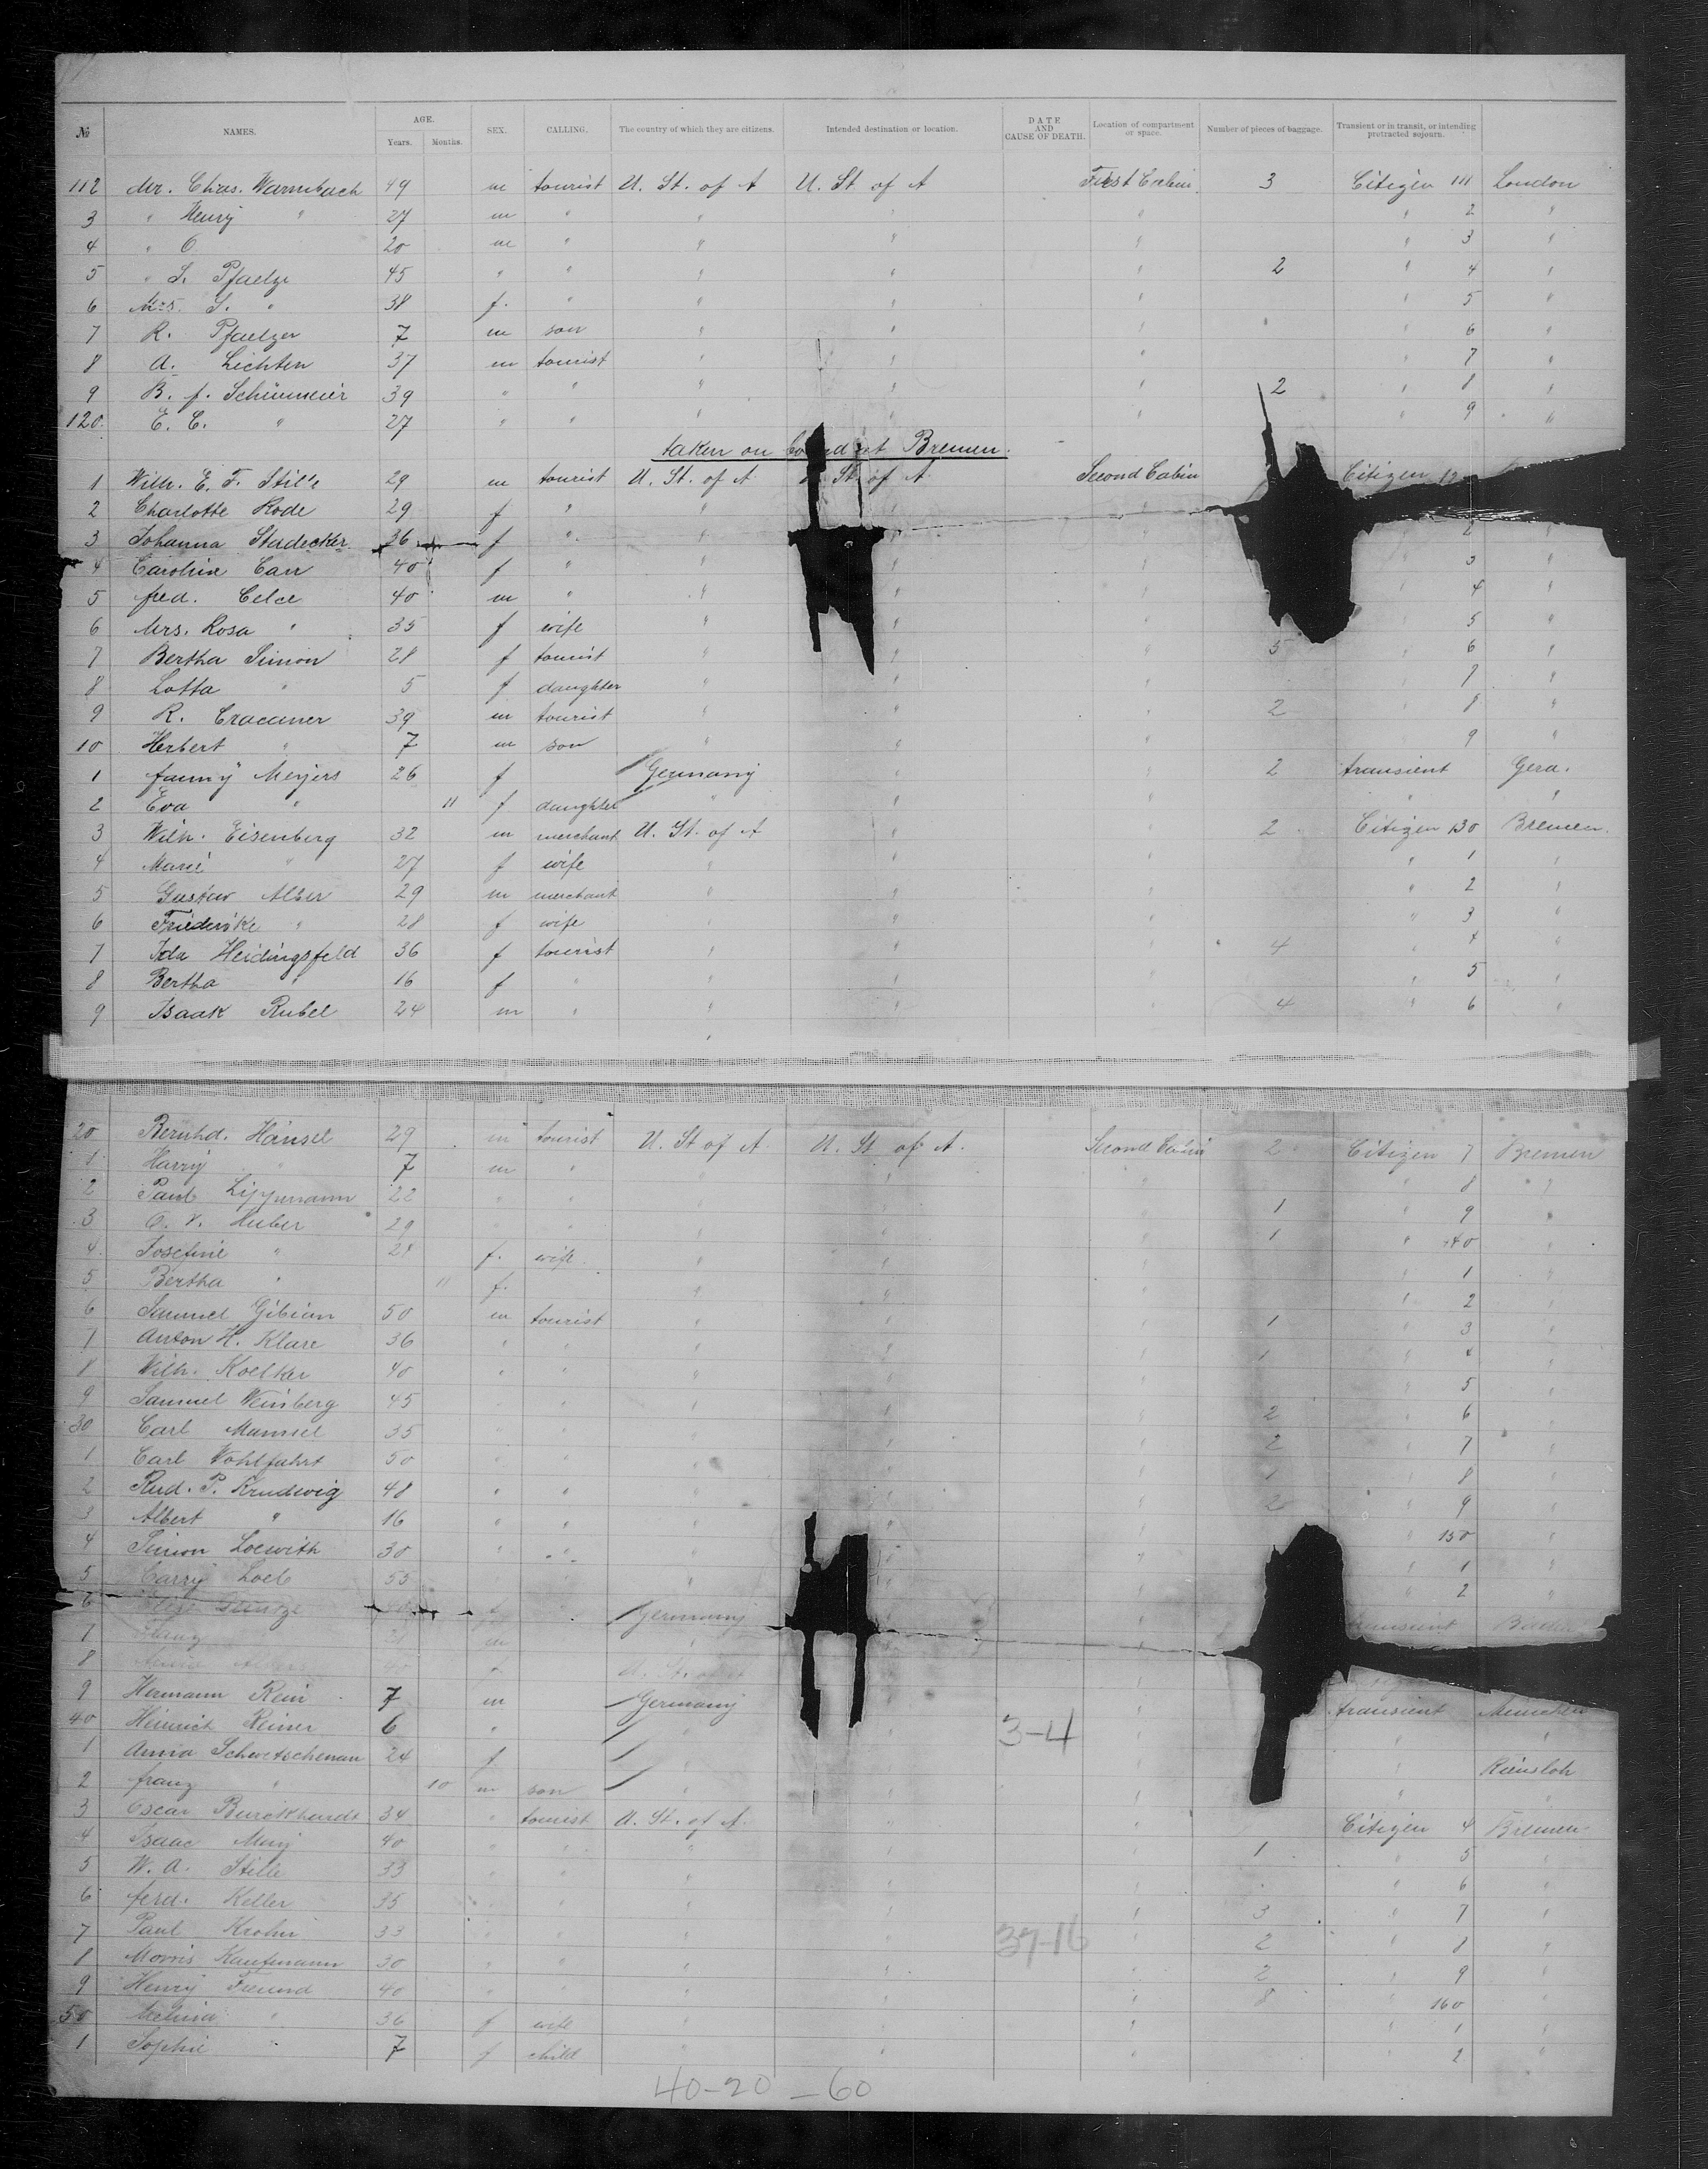 № NAMES. AGE. Years. Months. SEX. CALLING. The country of which they are citizens. Intended destination or location. DATE AND CAUSE OF DEATH. Location of compartment or space. Number of pieces of baggage. Transient or in transit, or intending protracted sojourn.
112 Mr. Chas. Warmbach 49 m tourist U. St. of A U. St of A First Cabin 3 Citizen 111 London
3 " Henry " 27 m " " " " " 2 "
4 " O 20 m " " " " " 3 "
5 " S. Pfaelze 45 " " " " " 2 " 4 "
6 Mrs. S. " 38 f. " " " " " 5 "
7 R. Pfaelzer 7 m son " " " " 6 "
8 A. Lichten 37 m tourist " " " " 7 "
9 B. f. Schünmeier 39 " " " " " 2 " 8 "
120. E. C. " 27 " " " " " " 9 "
taken on board at Bremen.
1 Wilh. E. F. Stille 29 m tourist U. St. of A St. of A Second Cabin Citizen
2 Charlotte Rode 29 f " " " "
3 Johanna Stadecker 36 f " " " " 2 "
4 Caroline Carr 40 f " " " " " 3 "
5 fred. Celce 40 m " " " " " 4 "
6 Mrs. Rosa " 35 f wife " " " " 5 "
7 Bertha Simon 28 f tourist " " " 3 " 6 "
8 Lotta " 5 f daughter " " " " 7 "
9 R. 39 m tourist " " " 2 " 8 "
10 Herbert " 7 m son " " " " 9 "
1 fanny Meyers 26 f Germany " " 2 transient Gera.
2 Eva " 11 f daughter " " " " "
3 Wilh. Eisenberg 32 m merchant U. St. of A " " 2 Citizen 130 Bremen.
4 Marie " 27 f wife " " " " 1 "
5 Gustav Alber 29 m merchant " " " " 2 "
6 Friederike " 28 f wife " " " " 3 "
7 Ida Heidingsfeld 36 f tourist " " " 4 " 4 "
8 Bertha " 16 f " " " " " 5 "
9 Isaak Rubel 24 m " " " " 4 " 6 "
20 Bernhd. Hänsel 29 m tourist U. St of A. U. St of A. Second Cabin 2 Citizen 7 Bremen
1 Harry " 7 m " " " " " 8 "
2 Paul Lippmann 22 " " " " " 1 " 9 "
3 O. V. Huber 29 " " " " " 1 " 140 "
4 Josefine " 28 f. wife " " " " 1 "
5 Bertha " 11 f. " " " " 2 "
6 Samuel Gibian 50 m tourist " " " 1 " 3 "
7 Anton H. Klare 36 " " " " " 1 " 4 "
8 Wilh. Koelker 40 " " " " " " 5 "
9 Samuel Weinberg 45 " " " " " 2 " 6 "
30 Carl Mumsel 35 " " " " " 2 " 7 "
1 Carl Wohlfahrt 50 " " " " " 1 " 8 "
2 Rud. P. Krudewig 48 " " " " " 2 " 9 "
3 Albert " 16 " " " " " " 150 "
4 Simon Loewith 30 " " " " " " 1 "
5 Carry Loeb 55 " " " " 2 "
6 f Germany " transient
7 m " "
8 f U. St. of A "
9 Hermann Rein 7 m Germany " transient München
40 Heinrich Reiner 6 " " 3-4 " " "
1 Anna Schwetschenau 24 f " " " " Riensloh
2 franz " 10 m son " " " " "
3 Oscar Burckhardt 34 " tourist U. St. of A. " " Citizen 4 Bremen.
4 Isaac May 40 " " " " " 1 " 5 "
5 W. A. Stille 33 " " " " " " 6 "
6 ferd. Keller 35 " " " " " 3 " 7 "
7 Paul Krohn 33 " " " " 37-16 " 2 " 8 "
8 Morris Kaufmann 30 " " " " " 2 " 9 "
9 Henry Freund 40 " " " " " 8 " 160 "
50 " 36 f wife " " " " 1 "
1 Sophie " 7 f child " " " 2 "
40-20-60